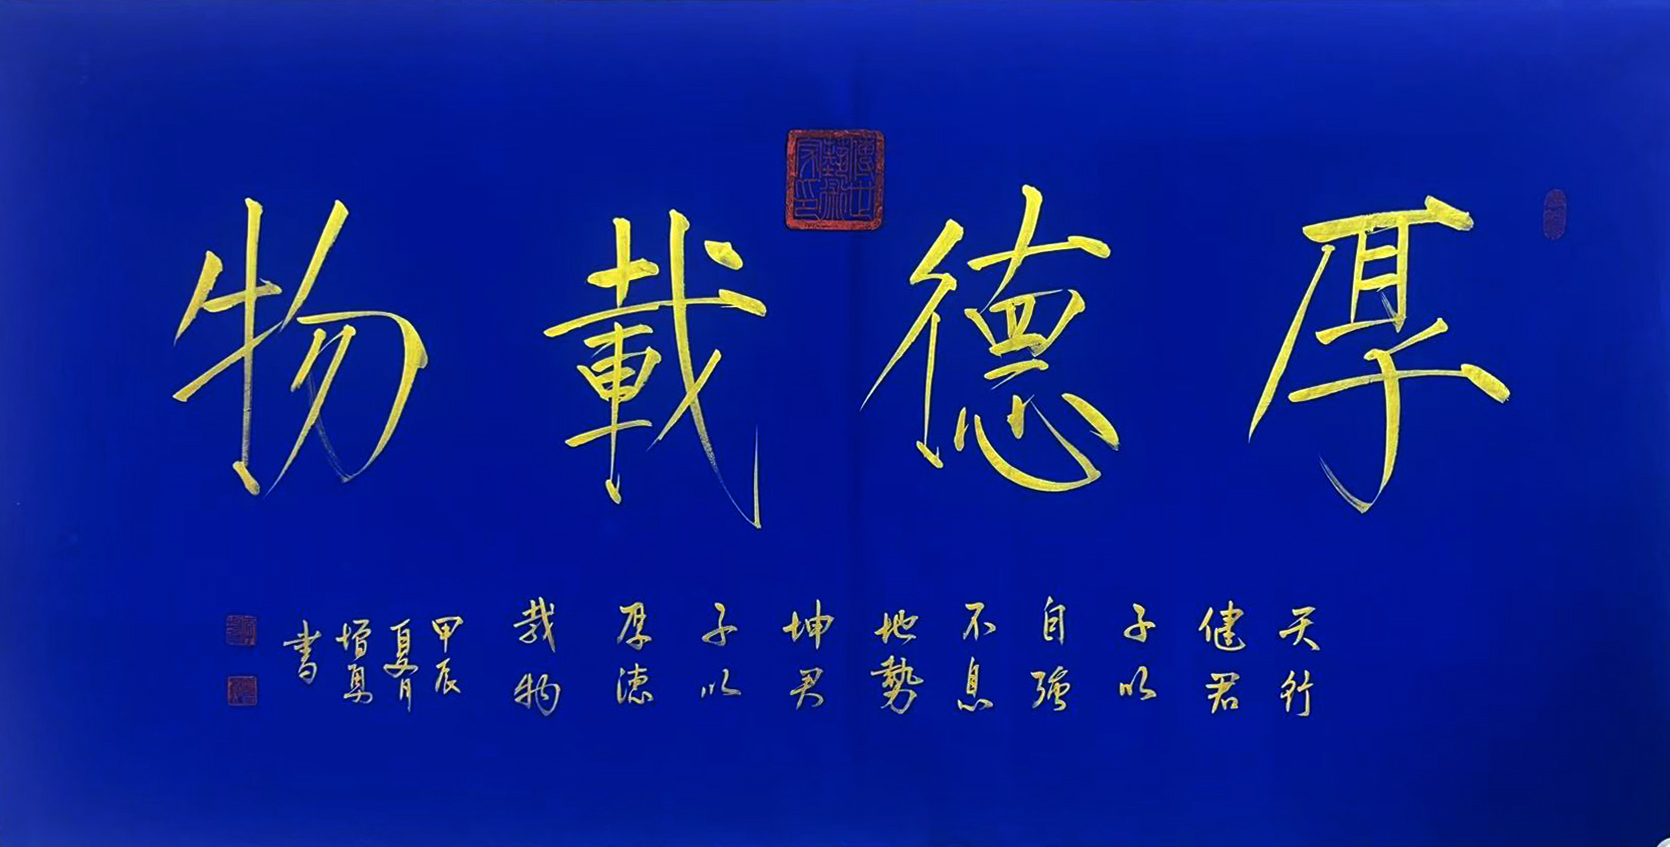 厚德載物
傳世
藝術
家印
天行
健君
子以
自強
不息
地勢
坤君
子以
厚德
載物
甲辰
夏月
增
書